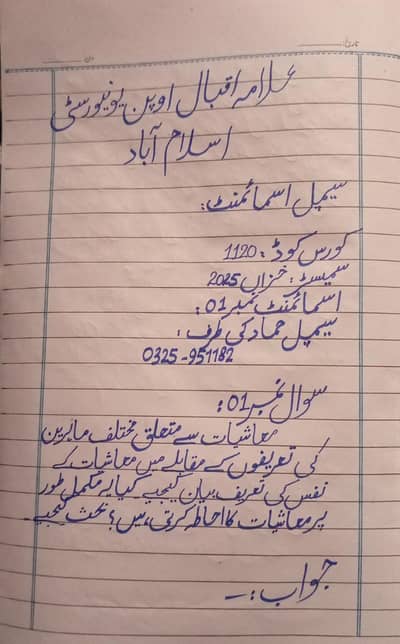 تاریخ
علامہ اقبال اوپن یونیورسٹی
اسلام آباد
سیمپل اسمائمنٹ:
کورس کوڈ: 1120
سمیسٹر: خزاں 2025
اسمائمنٹ نمبر 01:
سیمپل حماد کی طرف:
0325-951182
سوال نمبر 01:
معاشیات سے متعلق مختلف ماہرین
کی تعریفوں کے مقابلے میں معاشیات کے
نفس کی تعریف بیان کیجیے کیا یہ مکمل طور
پر معاشیات کا احاطہ کرتی ہیں؟ بحث کیجیے۔
جواب:۔